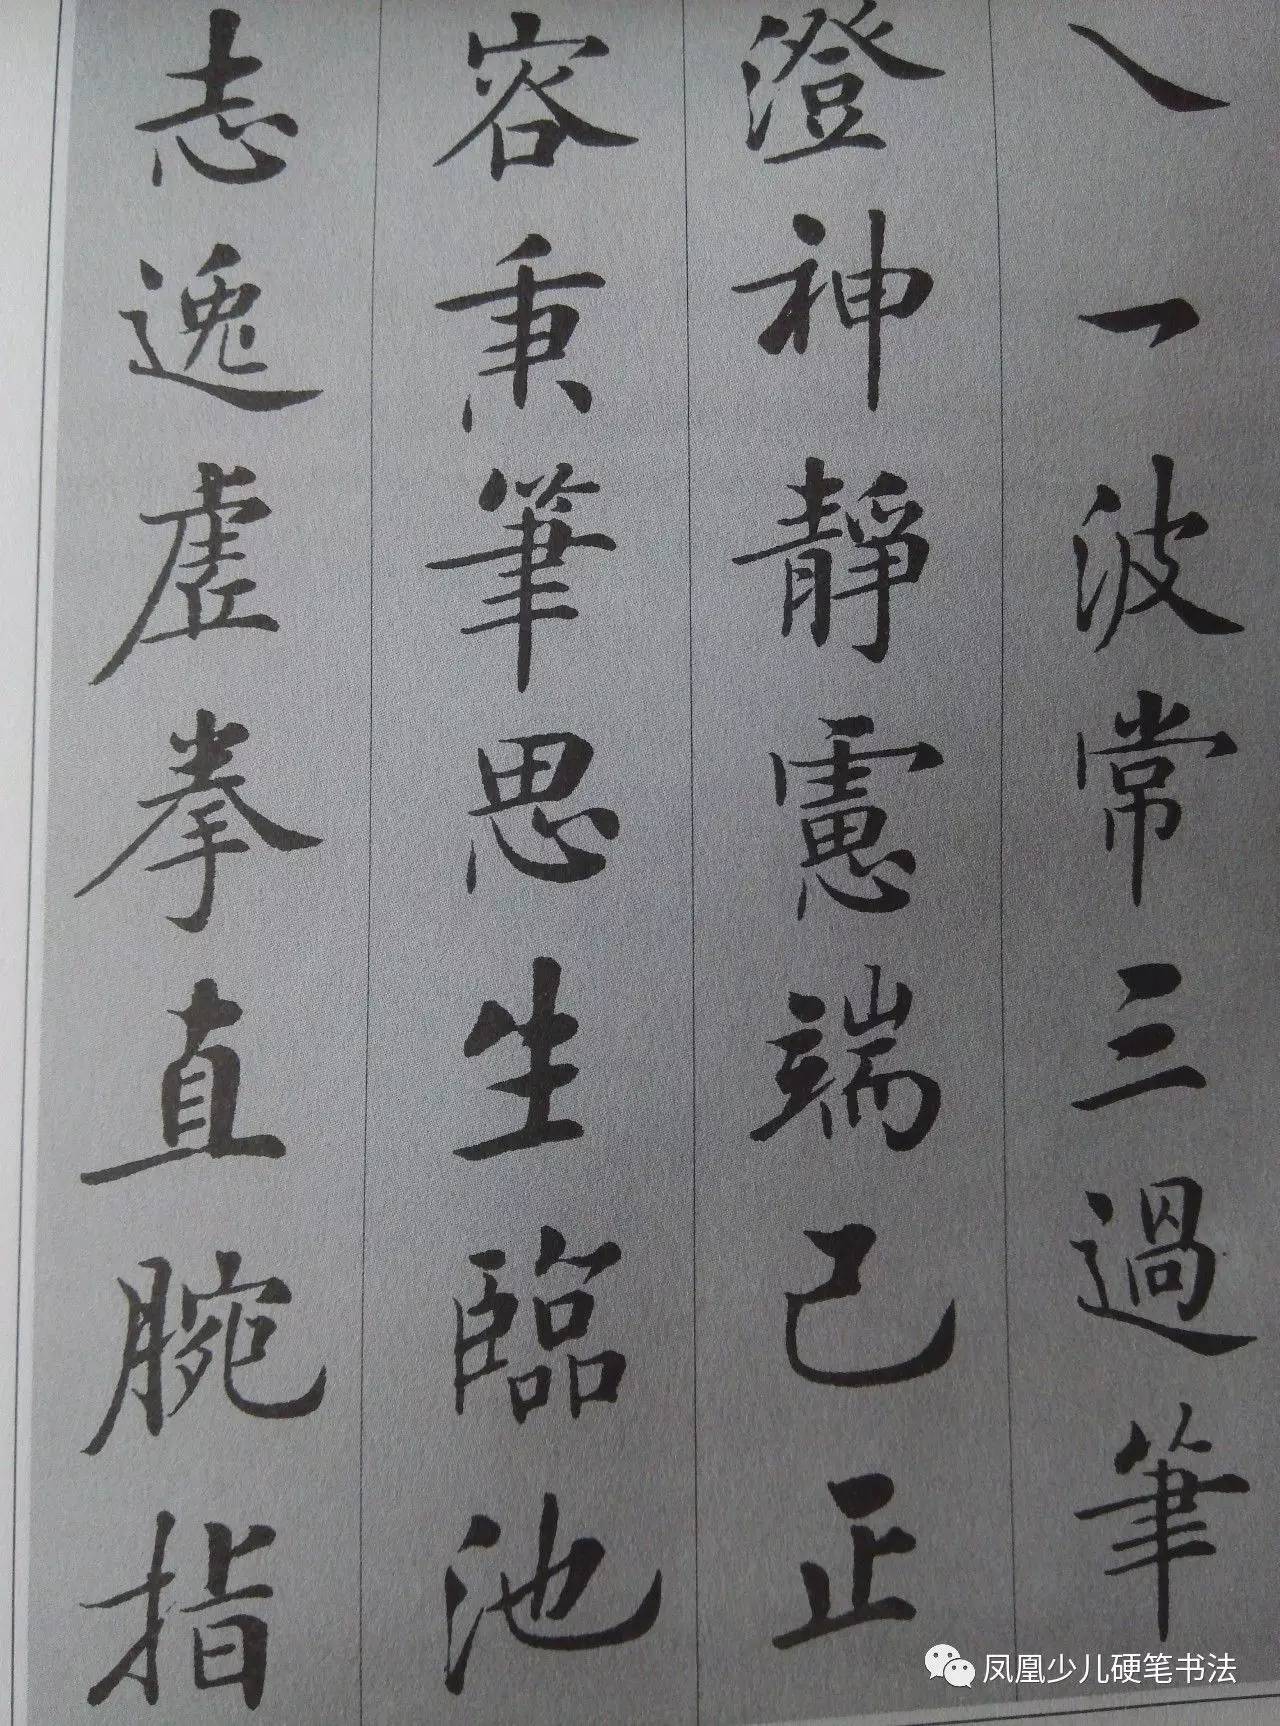 ㇏一波常三過筆
澄神靜慮端己正
容秉筆思生臨池
志逸虛拳直腕指
凤凰少儿硬笔书法